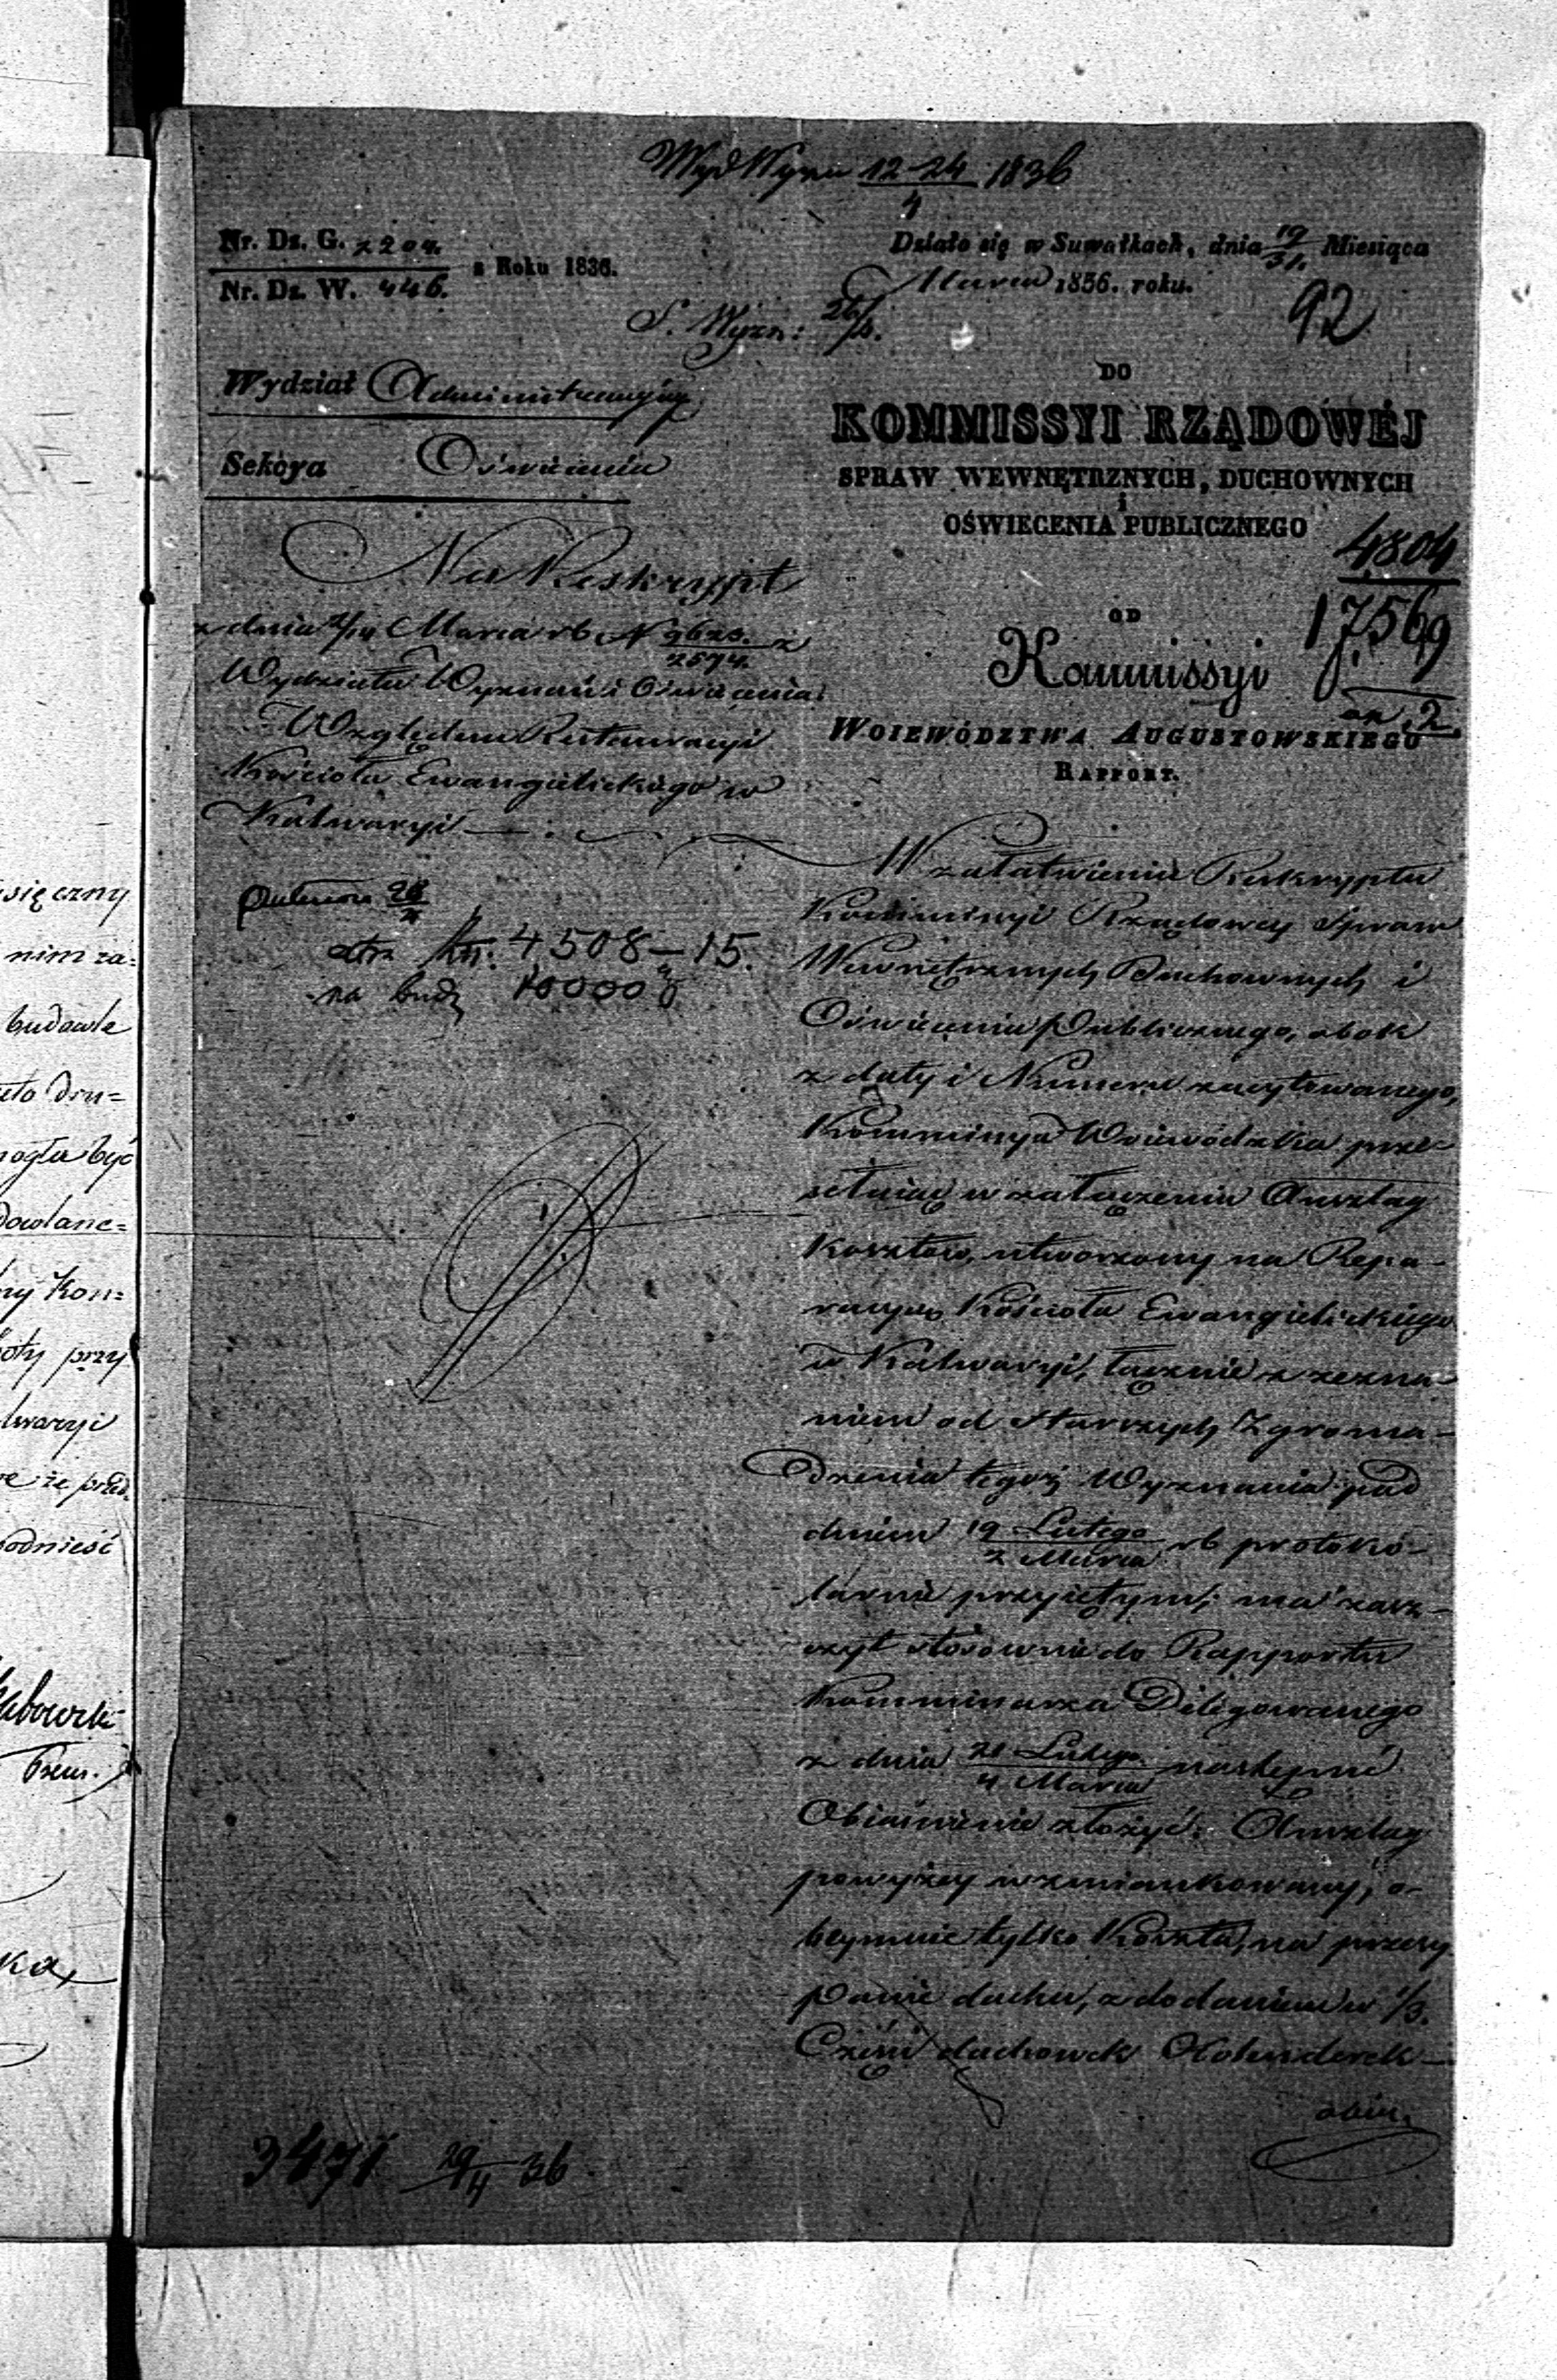 sięczny
nim za-
budowle
dru-
mogła być
dowlane-
Kon-
przy
że przed
Wyd Wyzn 12-24/4 1836
Nr. Dz. G. 2204.
Nr. Dz. W. 446.
z Roku 1836.
Działo się w Suwałkach, dnia 19/31. Miesiąca
Marca 1836. roku.
92
S. Wyzn: 26/4.
Wydział Administracyjny
Sekcya Oświecenia
DO
KOMMISSYI RZĄDOWÉJ
SPRAW WEWNĘTRZNYCH, DUCHOWNYCH
i
OŚWIECENIA PUBLICZNEGO
4804
17569
an. 2.
OD
Kommissyi
WOIEWÓDZTWA AUGUSTOWSKIEGO
RAPPORT.
Na Reskrypt
z dnia 2/14 Marca rb N 9620./2574. z
Wydziału Wyznań i Oświecenia
Względem Restauracyi
Kościoła Ewangielickiego w
Kalwaryi
28
4508–15.
na bud 10000
W załatwieniu Reskryptu
Kommissyi Rządowey Spraw
Wewnętrznych Duchownych i
Oświecenia Publicznego, obok
z daty i Numeru zacytowanego,
Kommissya Woiewódzka prze-
sełaiąc w załączeniu Anszlag
kosztów, utworzony na Repa-
racyą Kościoła Ewangielickiego
w Kalwaryi, łącznie z zezna-
niem od Starszych Zgroma-
dzenia tegoż Wyznania pod
dniem 19 Lutego/2 Marca rb protokó-
larnie przyiętym; ma zasz-
czyt stosownie do Rapportu
Kommissarza Delegowanego
z dnia 21 Lutego/4 Marca następne
Obiaśnienie złożyć: Anszlag
powyżey wzmiankowany, o-
beymuie tylko Koszta, na przesy
panie dachu, z dodaniem w 1/3.
Części dachówek Holenderek
3471 29/4 36